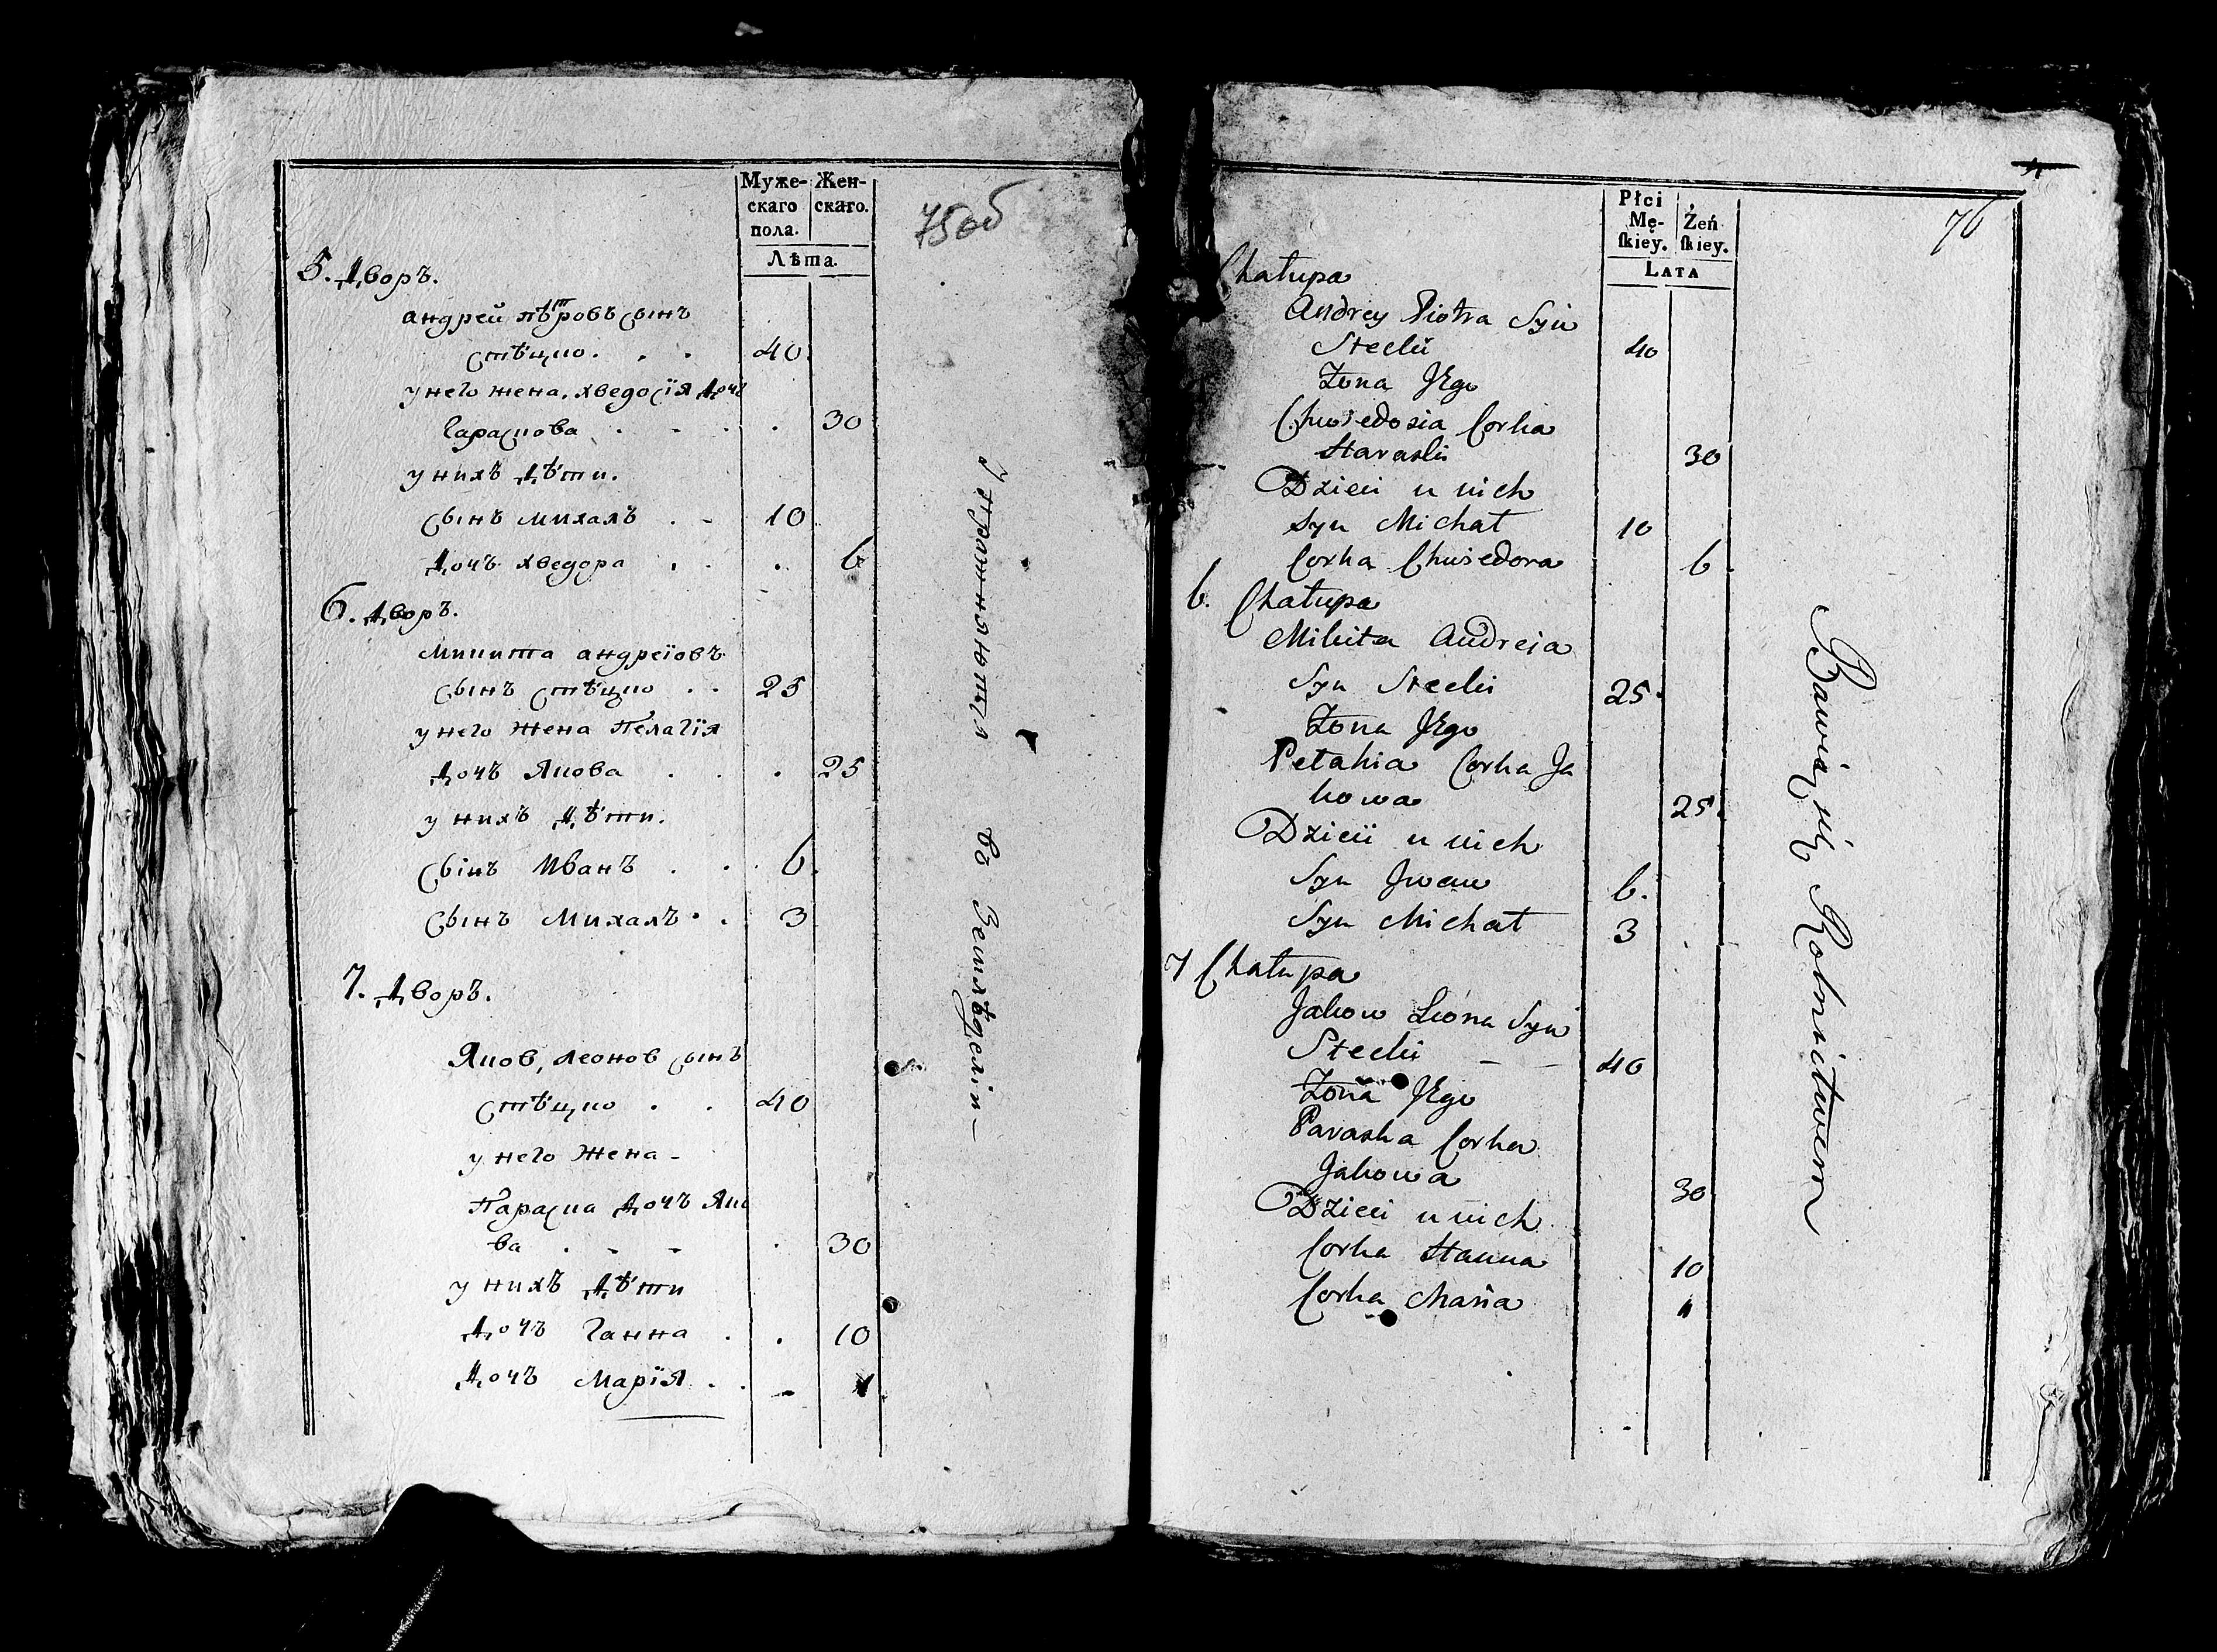 Муже-
скаго
пола.
Жен-
скаго.
Лѣта.
75об
5. Дворъ.
андрей пѣтровъ сынъ
стѣцко. 40
у него жена. хведосїя Дочь
Гараскова 30
у нихъ Дѣти.
сынъ михалъ 10
Дочъ хведора 6
6. Дворъ.
Микита андреїовъ
сынъ стѣцко 25
у него жена Пелагїя
Дочъ Якова 25
у нихъ Дѣти.
сынъ Иванъ 6
сынъ Михалъ 3
7. Дворъ.
Яков, леонов сынъ
стѣцко 40
у него жена -
Параска Дочъ Яко
ва 30
у нихъ Дѣти
Дочъ Ганна 10
Дочъ Марїя 1
Упражняются въ Земледѣлiи -
Płci
Mę-
ſkiey.
Żeń
ſkiey.
LATA
76
Chałupa
Andrey Piotra Syn
Stecki 40
Żona Jego
Chwiedosia Corka
Haraski 30
Dzieci u nich
Syn Michał 10
Corka Chwiedora 6
6. Chałupa
Mikita Andreia
Syn Stecki 25
Żona Jego
Pełahia Corka Ja
kowa 25
Dzieci u nich
Syn Jwan 6.
Syn Michał 3
7 Chałupa
Jakow Leona Syn
Stecki - - 40
Żona Jego
Paraska Corka
Jakowa 30
Dzieci u nich
Corka Hanna 10
Corka Maria 1
Bawią się Rolnictwem